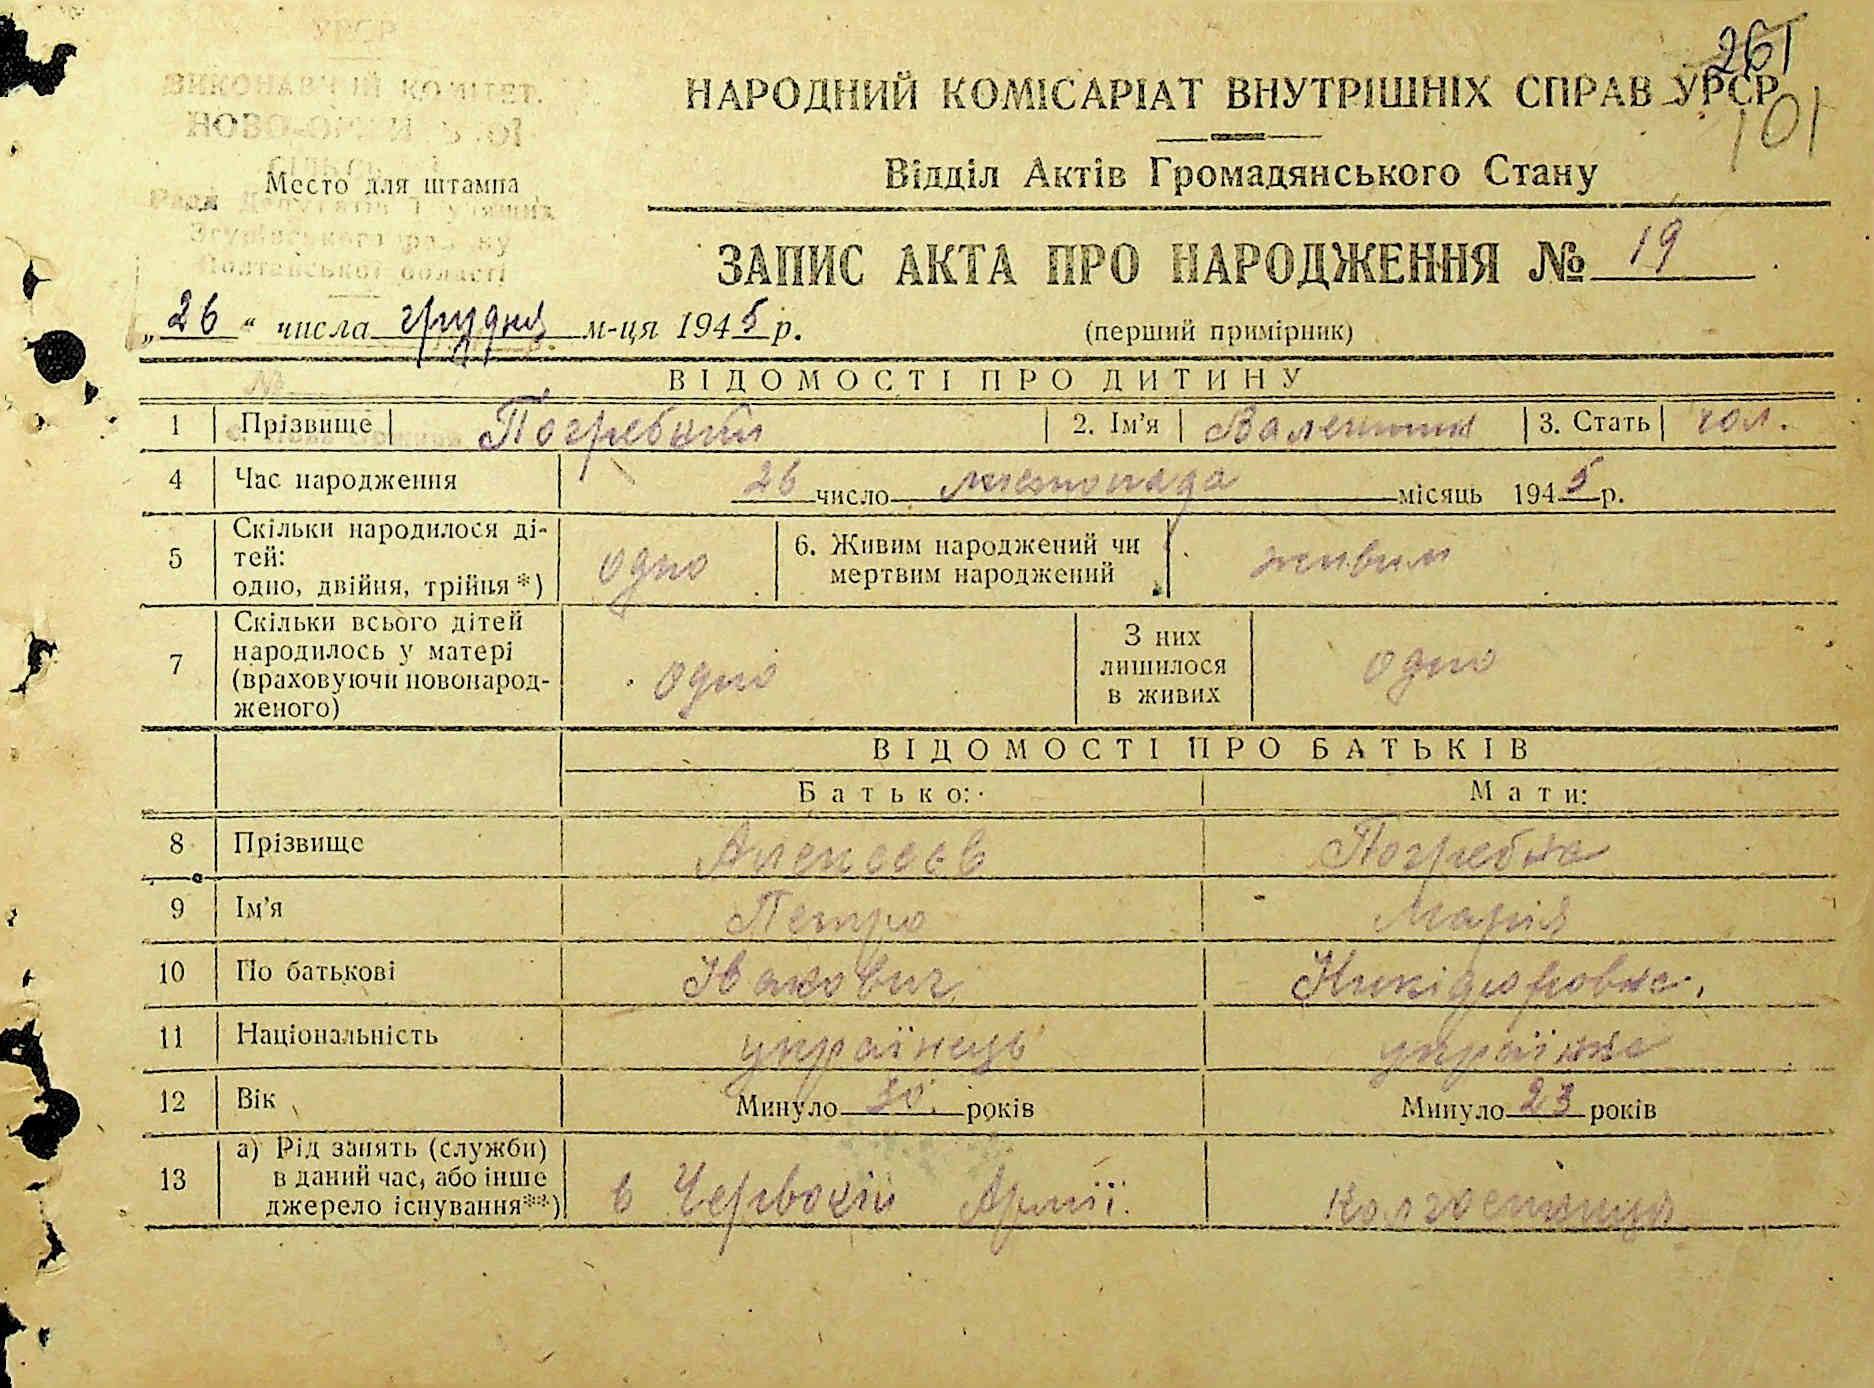 261
НАРОДНИЙ КОМІСАРІАТ ВНУТРІШНІХ СПРАВ УРСР
101
Відділ Актів Громадянського Стану
УРСР
ВИКОНАВЧИЙ КОМІТЕТ
Место для штампа
Полтавської області
ЗАПИС АКТА ПРО НАРОДЖЕННЯ № 19
„26“ числа грудня м-ця 1945 р.
(перший примірник)
ВІДОМОСТІ ПРО ДИТИНУ
1 Прізвище Погребний 2. Ім'я Валентин 3. Стать чол.
4 Час народження 26 число листопада місяць 1945 р.
5 Скільки народилося ді-
тей:
одно, двійня, трійня *) одно
6. Живим народжений чи
мертвим народжений живим
7 Скільки всього дітей
народилось у матері
(враховуючи новонарод-
женого) одно
З них
лишилося
в живих одно
ВІДОМОСТІ ПРО БАТЬКІВ
Батько: Мати:
8 Прізвище Алексєєв Погребна
9 Ім'я Петро Марія
10 По батькові Никіфоровна
11 Національність українець українка
12 Вік Минуло 30 років Минуло 23 років
13 а) Рід занять (служби)
в даний час, або інше
джерело існування**) в Червоній Армії колгоспниця